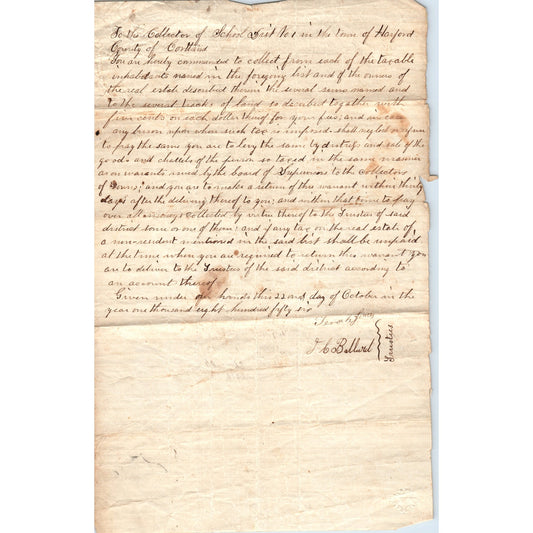 To the Collector of School Dist No 1 in the town of Harford
County of Cortland
You are hereby commanded to collect from each of the taxable
inhabitants named in the foregoing list and of the owners
of the real estate described therein the several sums named and
to the several tracks of land so described together with
five cents on each dollar thereof for your fees; and in case
any person upon whom such tax is imposed shall neglect or refuse
to pay the same you are to levy the same by distress and sale of the
goods and chattels of the person so taxed in the same manner
as on warrants issued by the board of Supervisors to the Collectors
of towns; and you are to make a return of this warrant within thirty
days after the delivery thereof to you; and within that time to pay
over all moneys collected by virtue thereof to the Trustees of said
district some or one of them: and if any tax on the real estate of
a non-resident mentioned in the said list shall be unpaid
at the time when you are required to return this warrant you
are to deliver to the Trustees of the said district according to
an account thereof
Given under our hands this 22nd day of October in the
year one thousand eight hundred fifty six
J C
Trustees